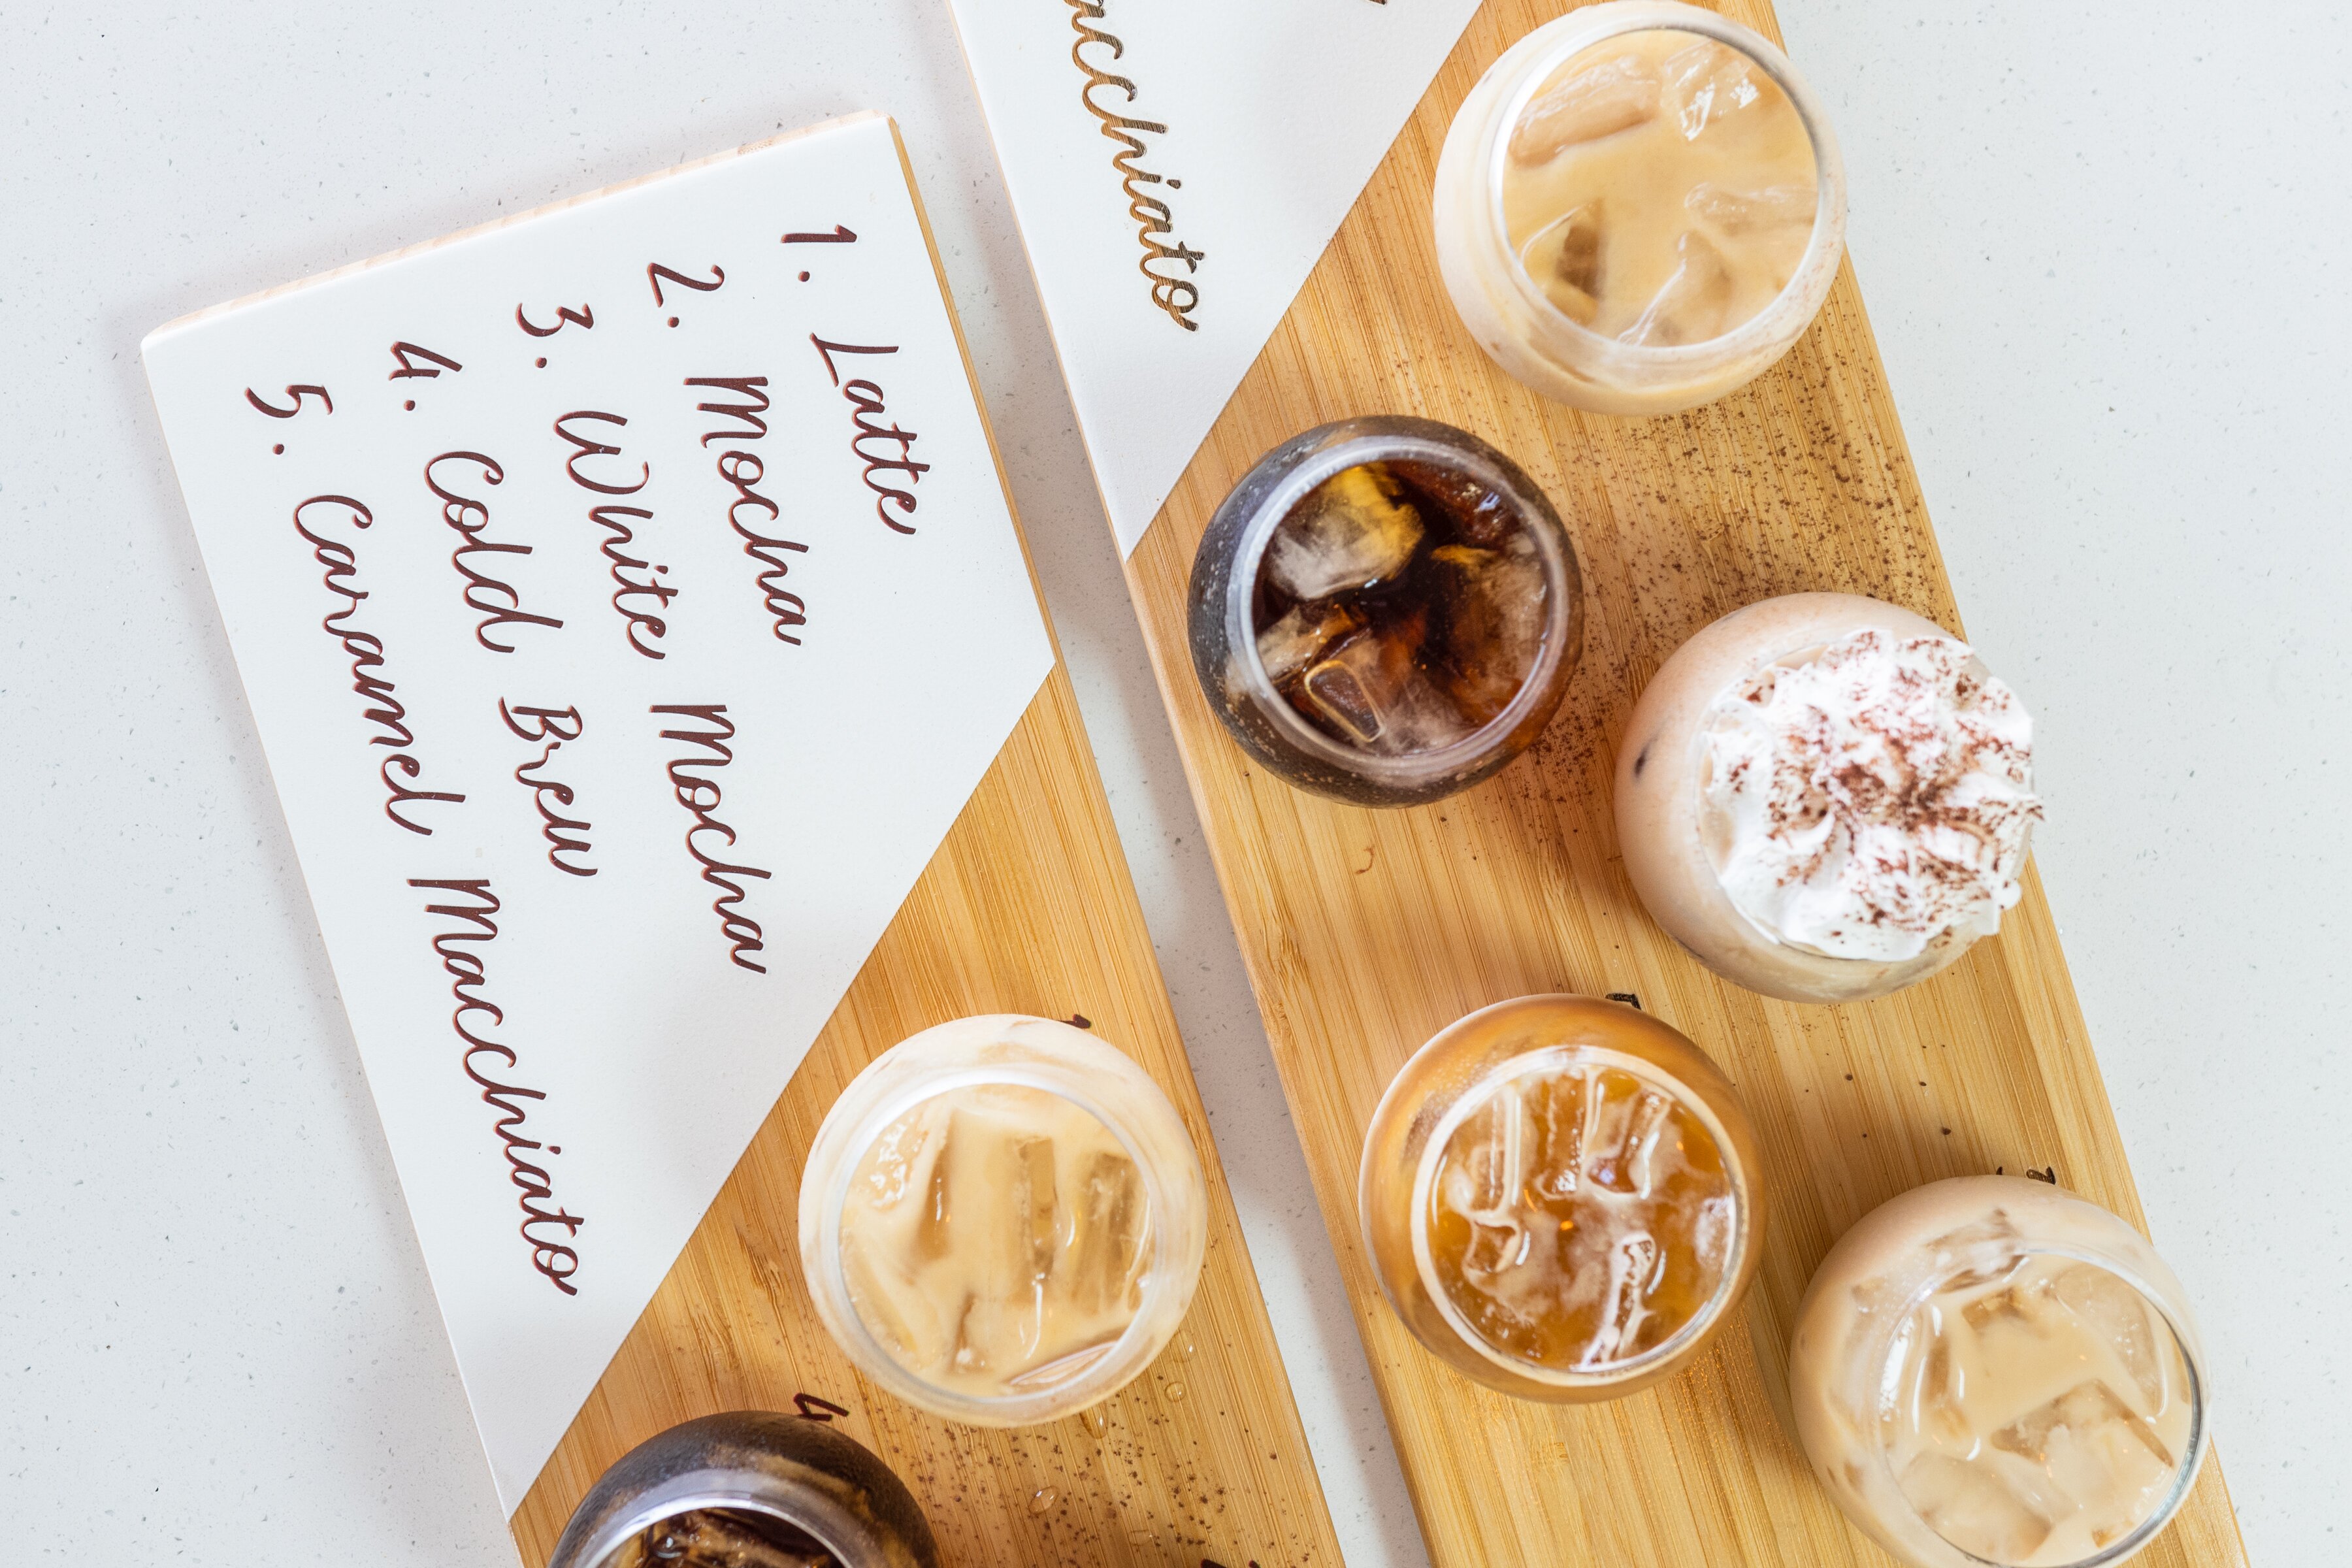 1. Latte
2. Mocha
3. White Mocha
4. Cold Brew
5. Caramel Macchiato
acchiato
1
4